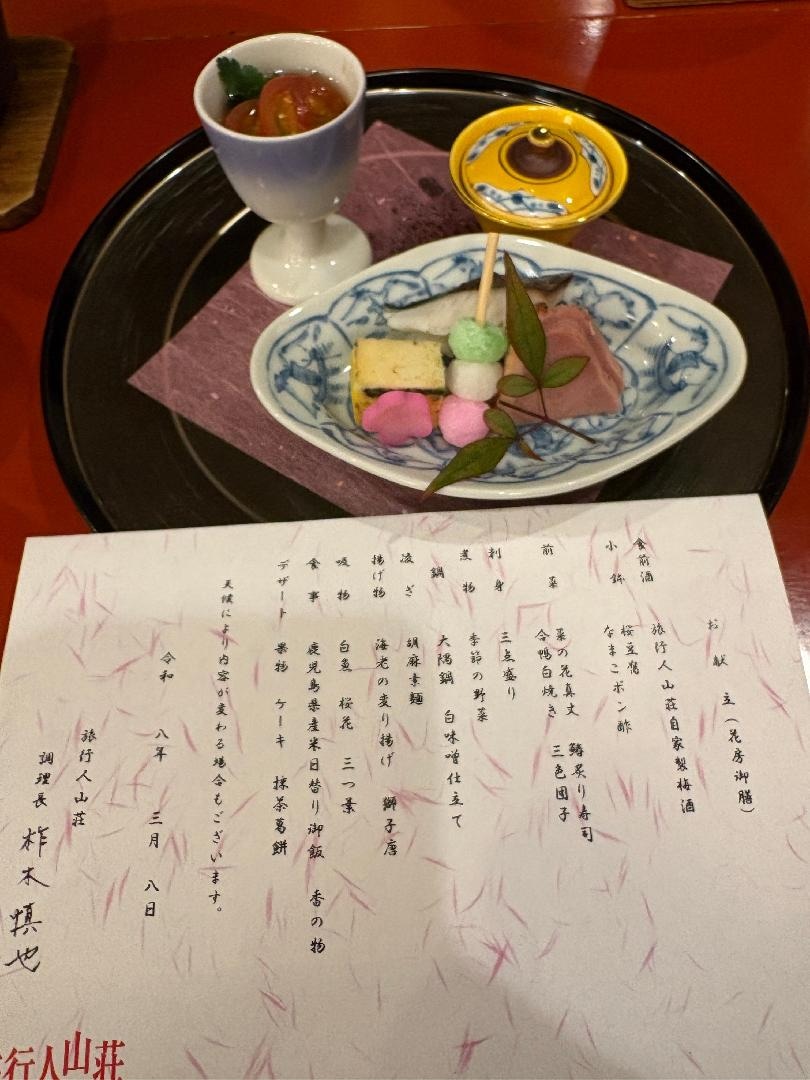 お献立(花房御膳)
食前酒 旅行人山荘自家製梅酒
小鉢 桜豆腐
なまこポン酢
前菜 菜の花真丈 鰆炙り寿司
合鴨白焼き 三色団子
刺身 三点盛り
煮物 季節の野菜
鍋 大隅鍋 白味噌仕立て
凌ぎ 胡麻素麺
揚げ物 海老の変り揚げ 獅子唐
吸物 白魚 桜花 三つ葉
食事 鹿児島県産米日替り御飯 香の物
デザート 果物 ケーキ 抹茶葛餅
天候により内容が変わる場合もございます。
令和 八年 三月 八日
旅行人山荘
調理長 柞木慎也
行人山荘